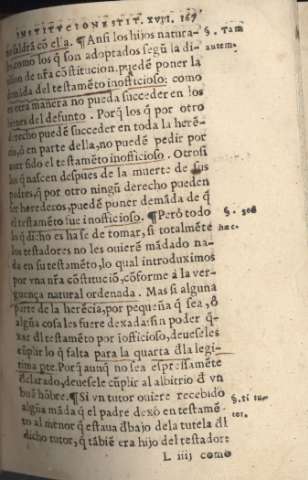 INSTITVCIONES TIT. XVII. 167
no saldrá cō ela. ¶ Ansi los hijos natura-
§. Tam
les como los q̄ son adoptados segū la di
autem.
uision de nr̄a cōstitucion, puedē poner la
demāda del testamēto inofficioso: como
en otra manera no pueda succeder en los
bienes del defunto. Porq̄ los q̄ por otro
derecho puedē succeder en toda la herē-
cia, ó en parte della, no puedē pedir por
testamēto inofficioso. Otrosi
los q̄ nascen despues de la muerte de sus
padres, q̄ por otro ningū derecho pueden
ser herederos, puedē poner demāda de q̄
el testamēto fue inofficioso. ¶ Pero todo
lo q̄ dicho es ha se de tomar, si totalmēte
hæc.
los testadores no les ouierē mādado na-
da en su testamēto, lo qual introduximos
por vna nr̄a cōstitució, cōforme á la ver-
guença natural ordenada. Mas si alguna
parte de la herécia, por pequeña q̄ sea, ó
algūa cosa les fuere dexada: sin poder q̄-
xar dl testamēto por iofficioso, deueseles
cūplir lo q̄ falta para la quarta dl̄a legi-
tima pte. Porq̄ aunq̄ no sea expressamēte
declarado, deuesele cūplir al albitrio d̄ vn
buē hōbre. ¶ Si vn tutor ouiere recebido
§. si tu-
algūa māda q̄ el padre dexó en testamē-
tor.
to al menor q̄ estaua dbajo dela tutela dl
dicho tutor, q̄ tābiē era hijo del testador:
L iiij como